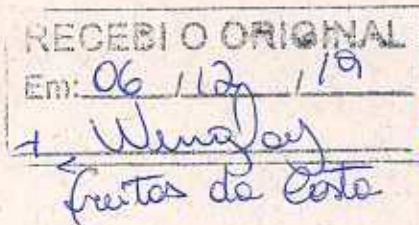 RECEBI O ORIGINAL
Em: 06 / 12 / 19
+ Wenglay
freitas da Costa